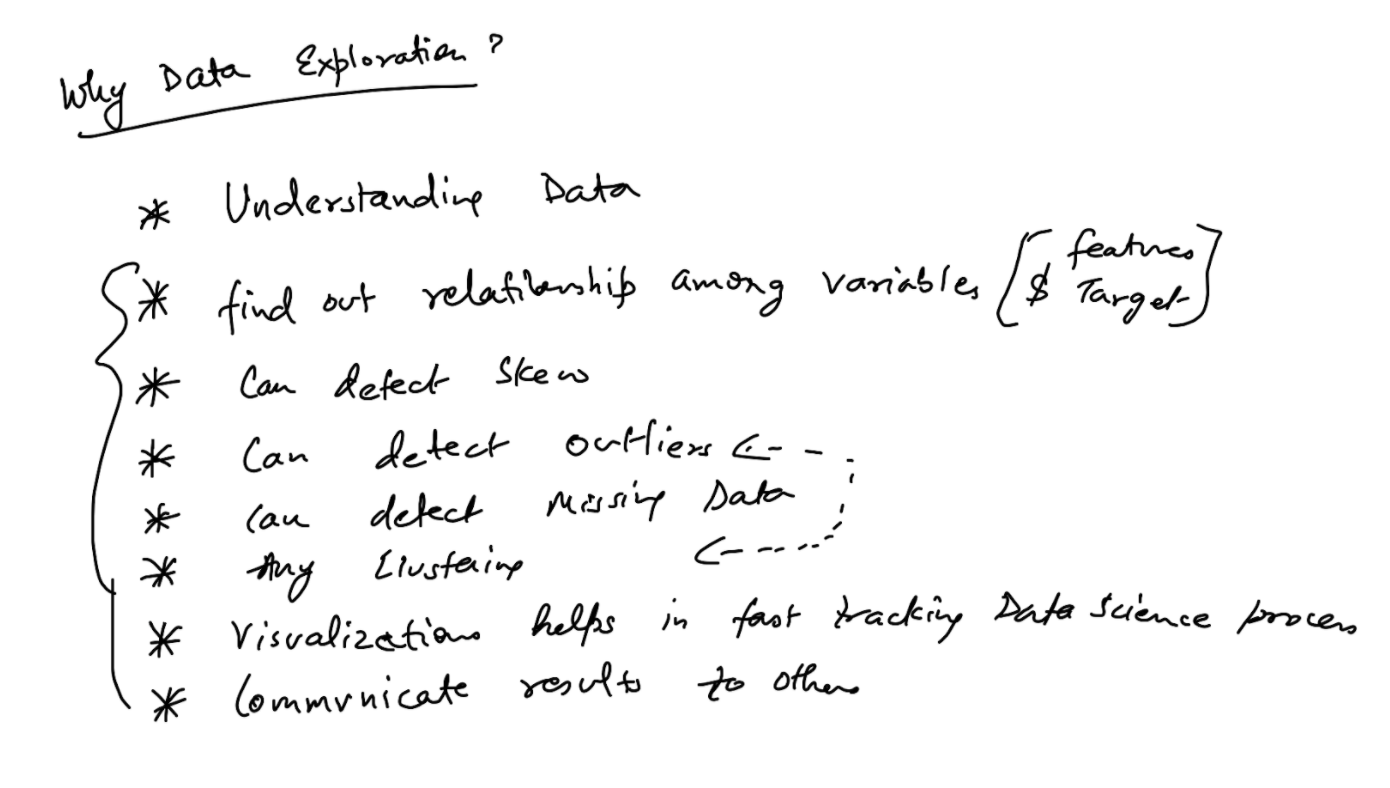 Why Data Exploration?
* Understanding Data
* find out relationship among variables [features
$ Target]
* Can detect Skew
* Can detect outliers
* Can detect Missing Data
* Any Clustering
* Visualizations helps in fast tracking Data Science process
* Communicate results to others